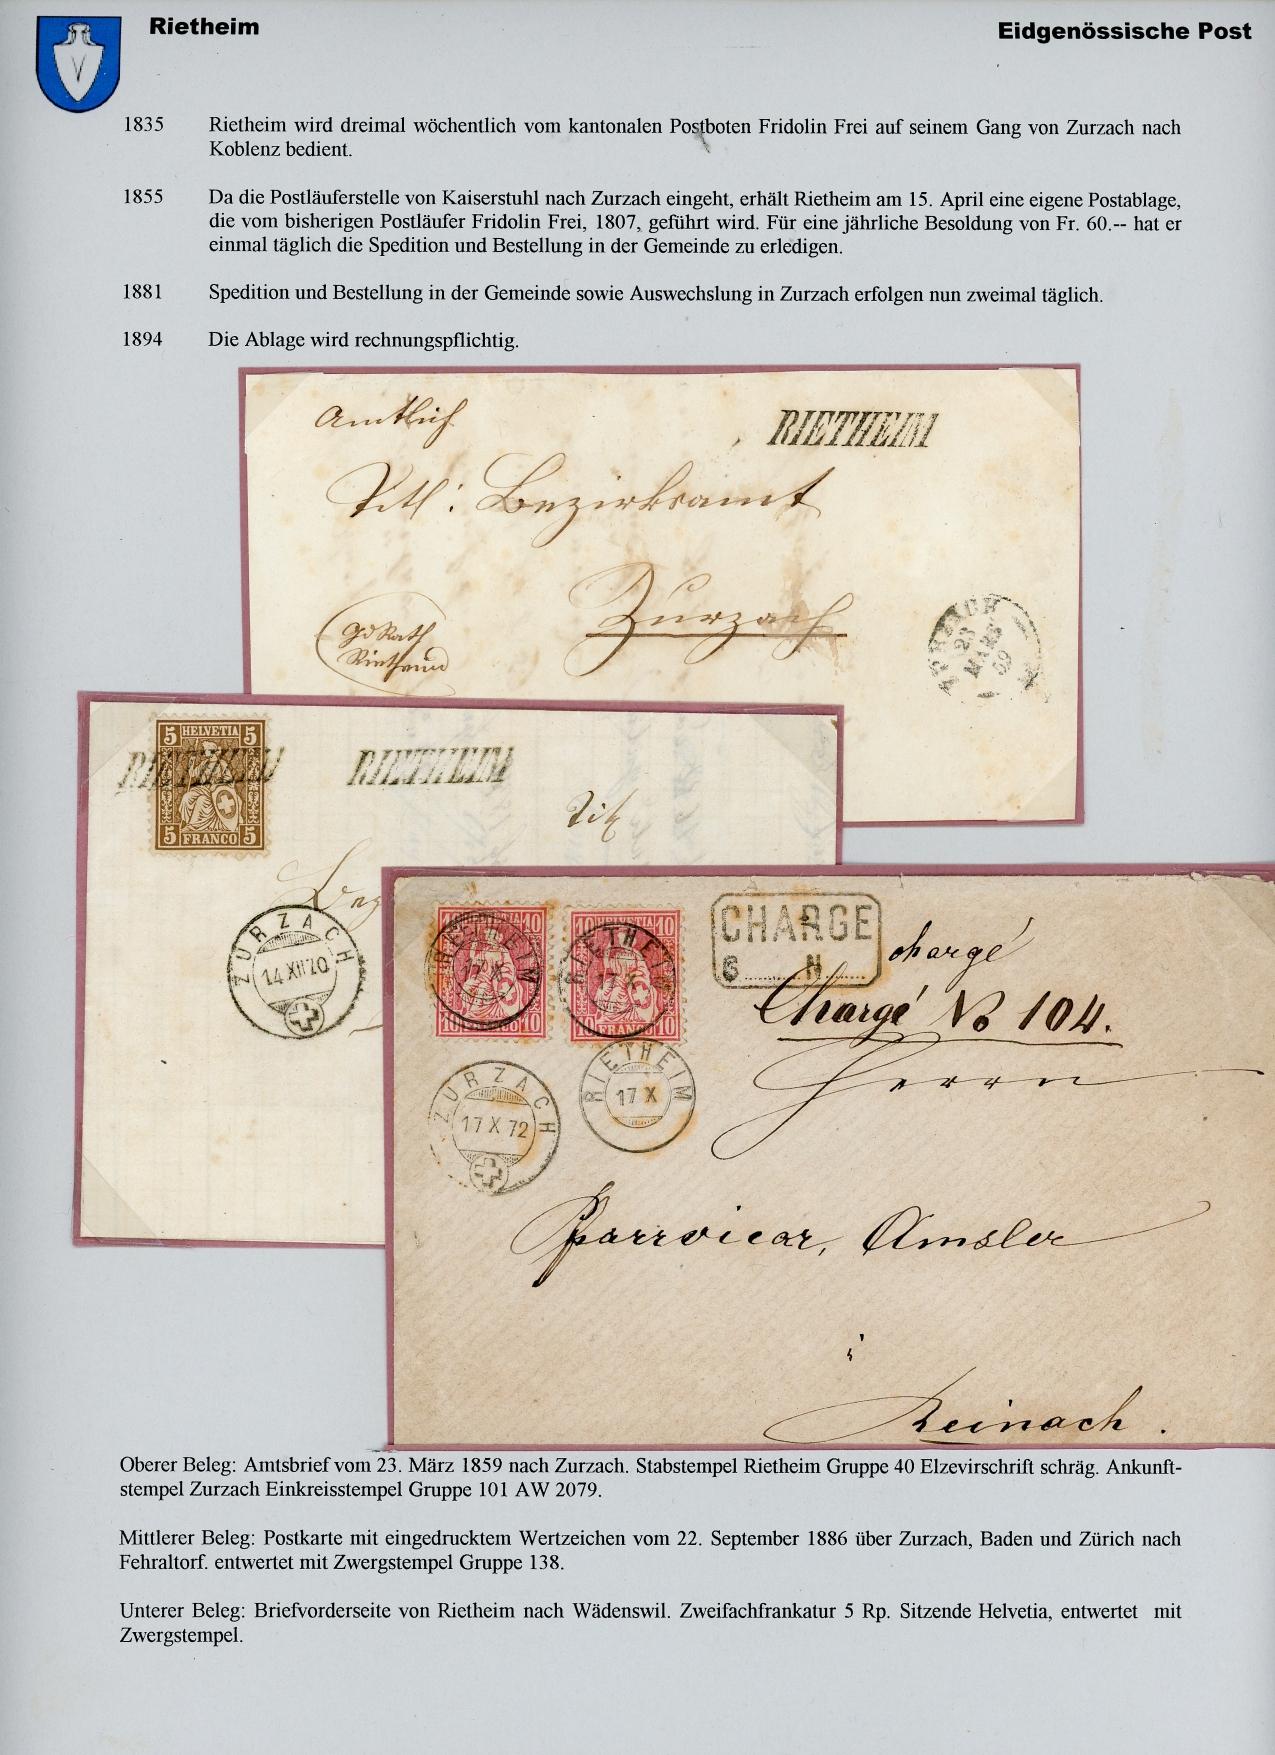 Rietheim
Eidgenössische Post
1835 Rietheim wird dreimal wöchentlich vom kantonalen Postboten Fridolin Frei auf seinem Gang von Zurzach nach
Koblenz bedient.
1855 Da die Postläuferstelle von Kaiserstuhl nach Zurzach eingeht, erhält Rietheim am 15. April eine eigene Postablage,
die vom bisherigen Postläufer Fridolin Frei, 1807, geführt wird. Für eine jährliche Besoldung von Fr. 60.-- hat er
einmal täglich die Spedition und Bestellung in der Gemeinde zu erledigen.
1881 Spedition und Bestellung in der Gemeinde sowie Auswechslung in Zurzach erfolgen nun zweimal täglich.
1894 Die Ablage wird rechnungspflichtig.
Amtlich
RIETHEIM
Titl: Bezirksamt
Zurzach
GdRath
Rietheim
23
MARS
59
5 HELVETIA 5
RIETHEIM
RIETHEIM
5 FRANCO 5
Tit
Bez
ZURZACH
14 XII 70
10 HELVETIA 10
RIETHEIM
17 X
10 10
10 HELVETIA 10
RIETHEIM
17 X
10 FRANCO 10
CHARGÉ
N
chargé
Chargé No 104.
RIETHEIM
17 X
Herrn
ZURZACH
17 X 72
Pfarrvicar, Amsler
i
Reinach.
Oberer Beleg: Amtsbrief vom 23. März 1859 nach Zurzach. Stabstempel Rietheim Gruppe 40 Elzevirschrift schräg. Ankunft-
stempel Zurzach Einkreisstempel Gruppe 101 AW 2079.
Mittlerer Beleg: Postkarte mit eingedrucktem Wertzeichen vom 22. September 1886 über Zurzach, Baden und Zürich nach
Fehraltorf. entwertet mit Zwergstempel Gruppe 138.
Unterer Beleg: Briefvorderseite von Rietheim nach Wädenswil. Zweifachfrankatur 5 Rp. Sitzende Helvetia, entwertet mit
Zwergstempel.